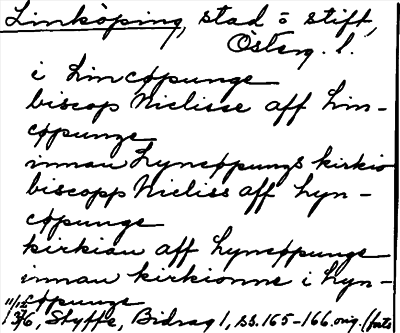 Linköping, stad o stift,
Österg. l.
i Lincøpunge
biscop Niclisse aff Lin-
cøpunge
innan Lyncøpungs kirkio
biscopp Nicliss aff Lyn-
cøpunge
kirkian aff Lyncøpunge
innan kirkionne i Lyn-
cøpunge
Styffe, Bidrag 1, ss. 165-166. orig. (forts